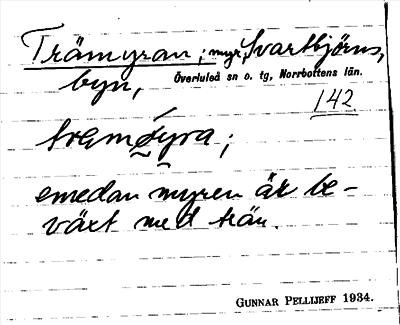 Trämyran; myr, Svartbjörns,
byn, Överluleå sn o. tg, Norrbottens län.
142
tremøyra;
emedan myren är be-
växt med trän.
GUNNAR PELLIJEFF 1934.